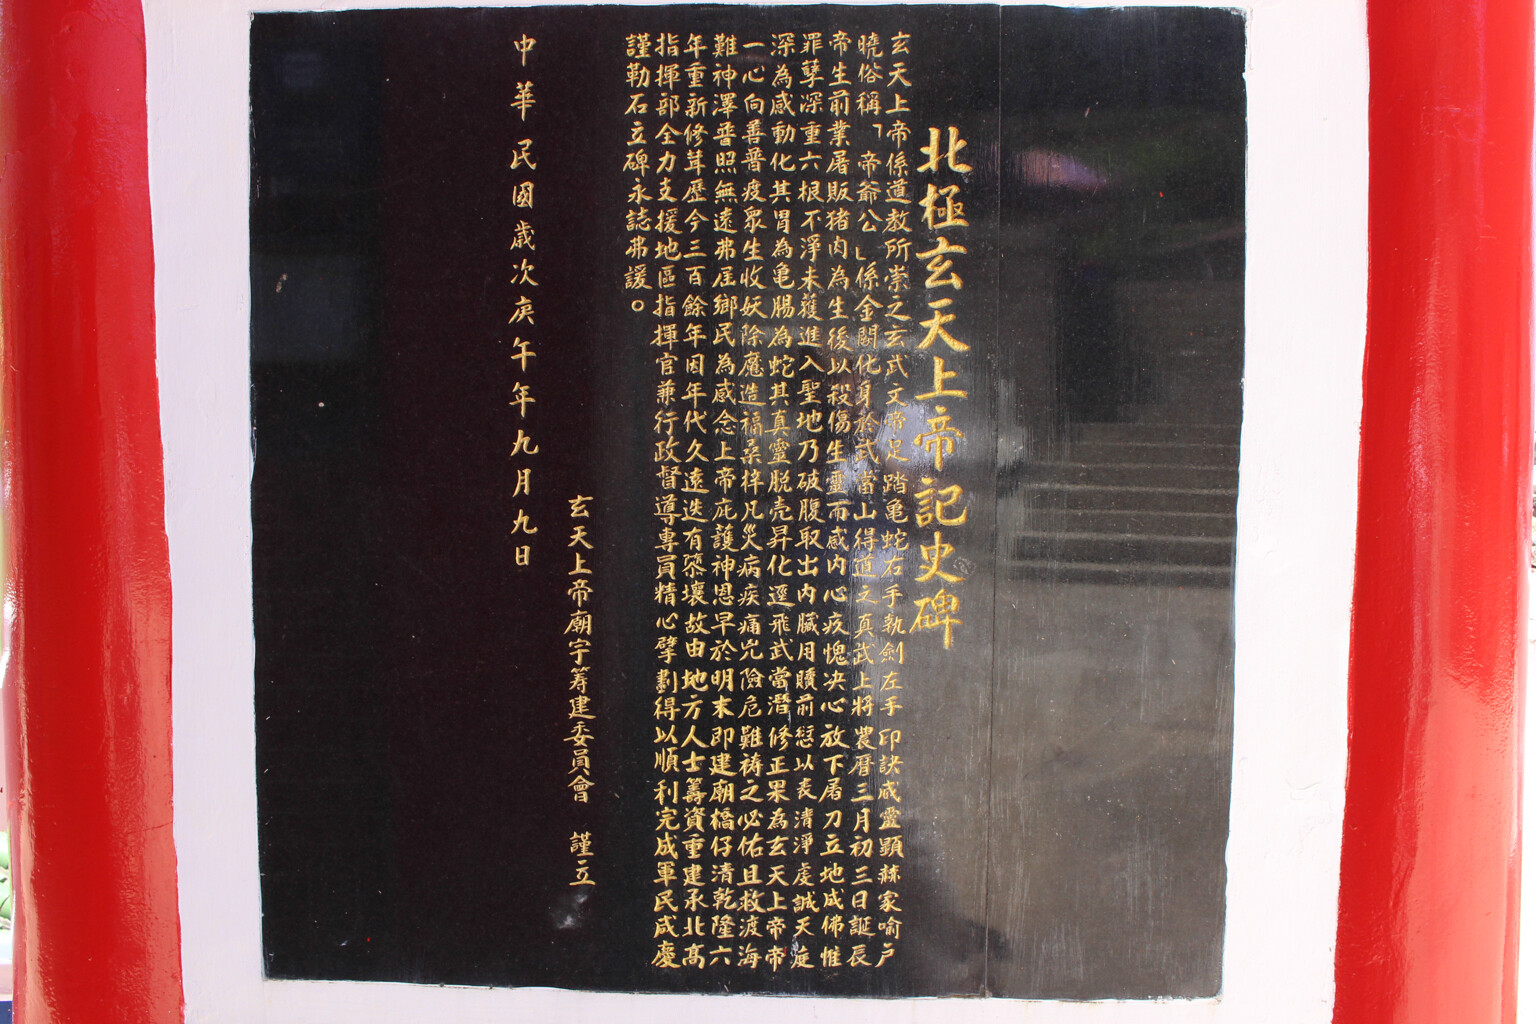 北極玄天上帝記史碑
玄天上帝係道教所崇之玄武文帝足踏亀蛇右手執劍左手印訣咸靈顯赫家喻戶
曉俗稱「帝爺公」係金闕化身於武當山得道之真武上將農曆三月初三日誕辰
帝生前業屠販猪肉為生後以殺傷生靈而感內心疚愧決心放下屠刀立地成佛惟
罪孽深重六根不淨未獲進入聖地乃破腹取出內臟用贖前愆以表清淨虔誠天庭
深為感動化其胃為亀腸為蛇其真靈脫壳昇化逕飛武當潛修正果為玄天上帝帝
一心向善普度眾生收妖除魔造福桑梓凡災病疾痛兇險危難祷之必佑且救渡海
難神澤普照無遠弗屆鄉民為感念上帝庇護神恩早於明末即建廟橋仔清乾隆六
年重新修葺歷今三百餘年因年代久遠迭有壞故由地方人士籌資重建承北髙
指揮部全力支援地區指揮官兼行政督導專員精心擘劃得以順利完成軍民咸慶
謹勒石立碑永誌弗諼。
玄天上帝廟宇籌建委員會 謹立
中華民國歲次庚午年九月九日